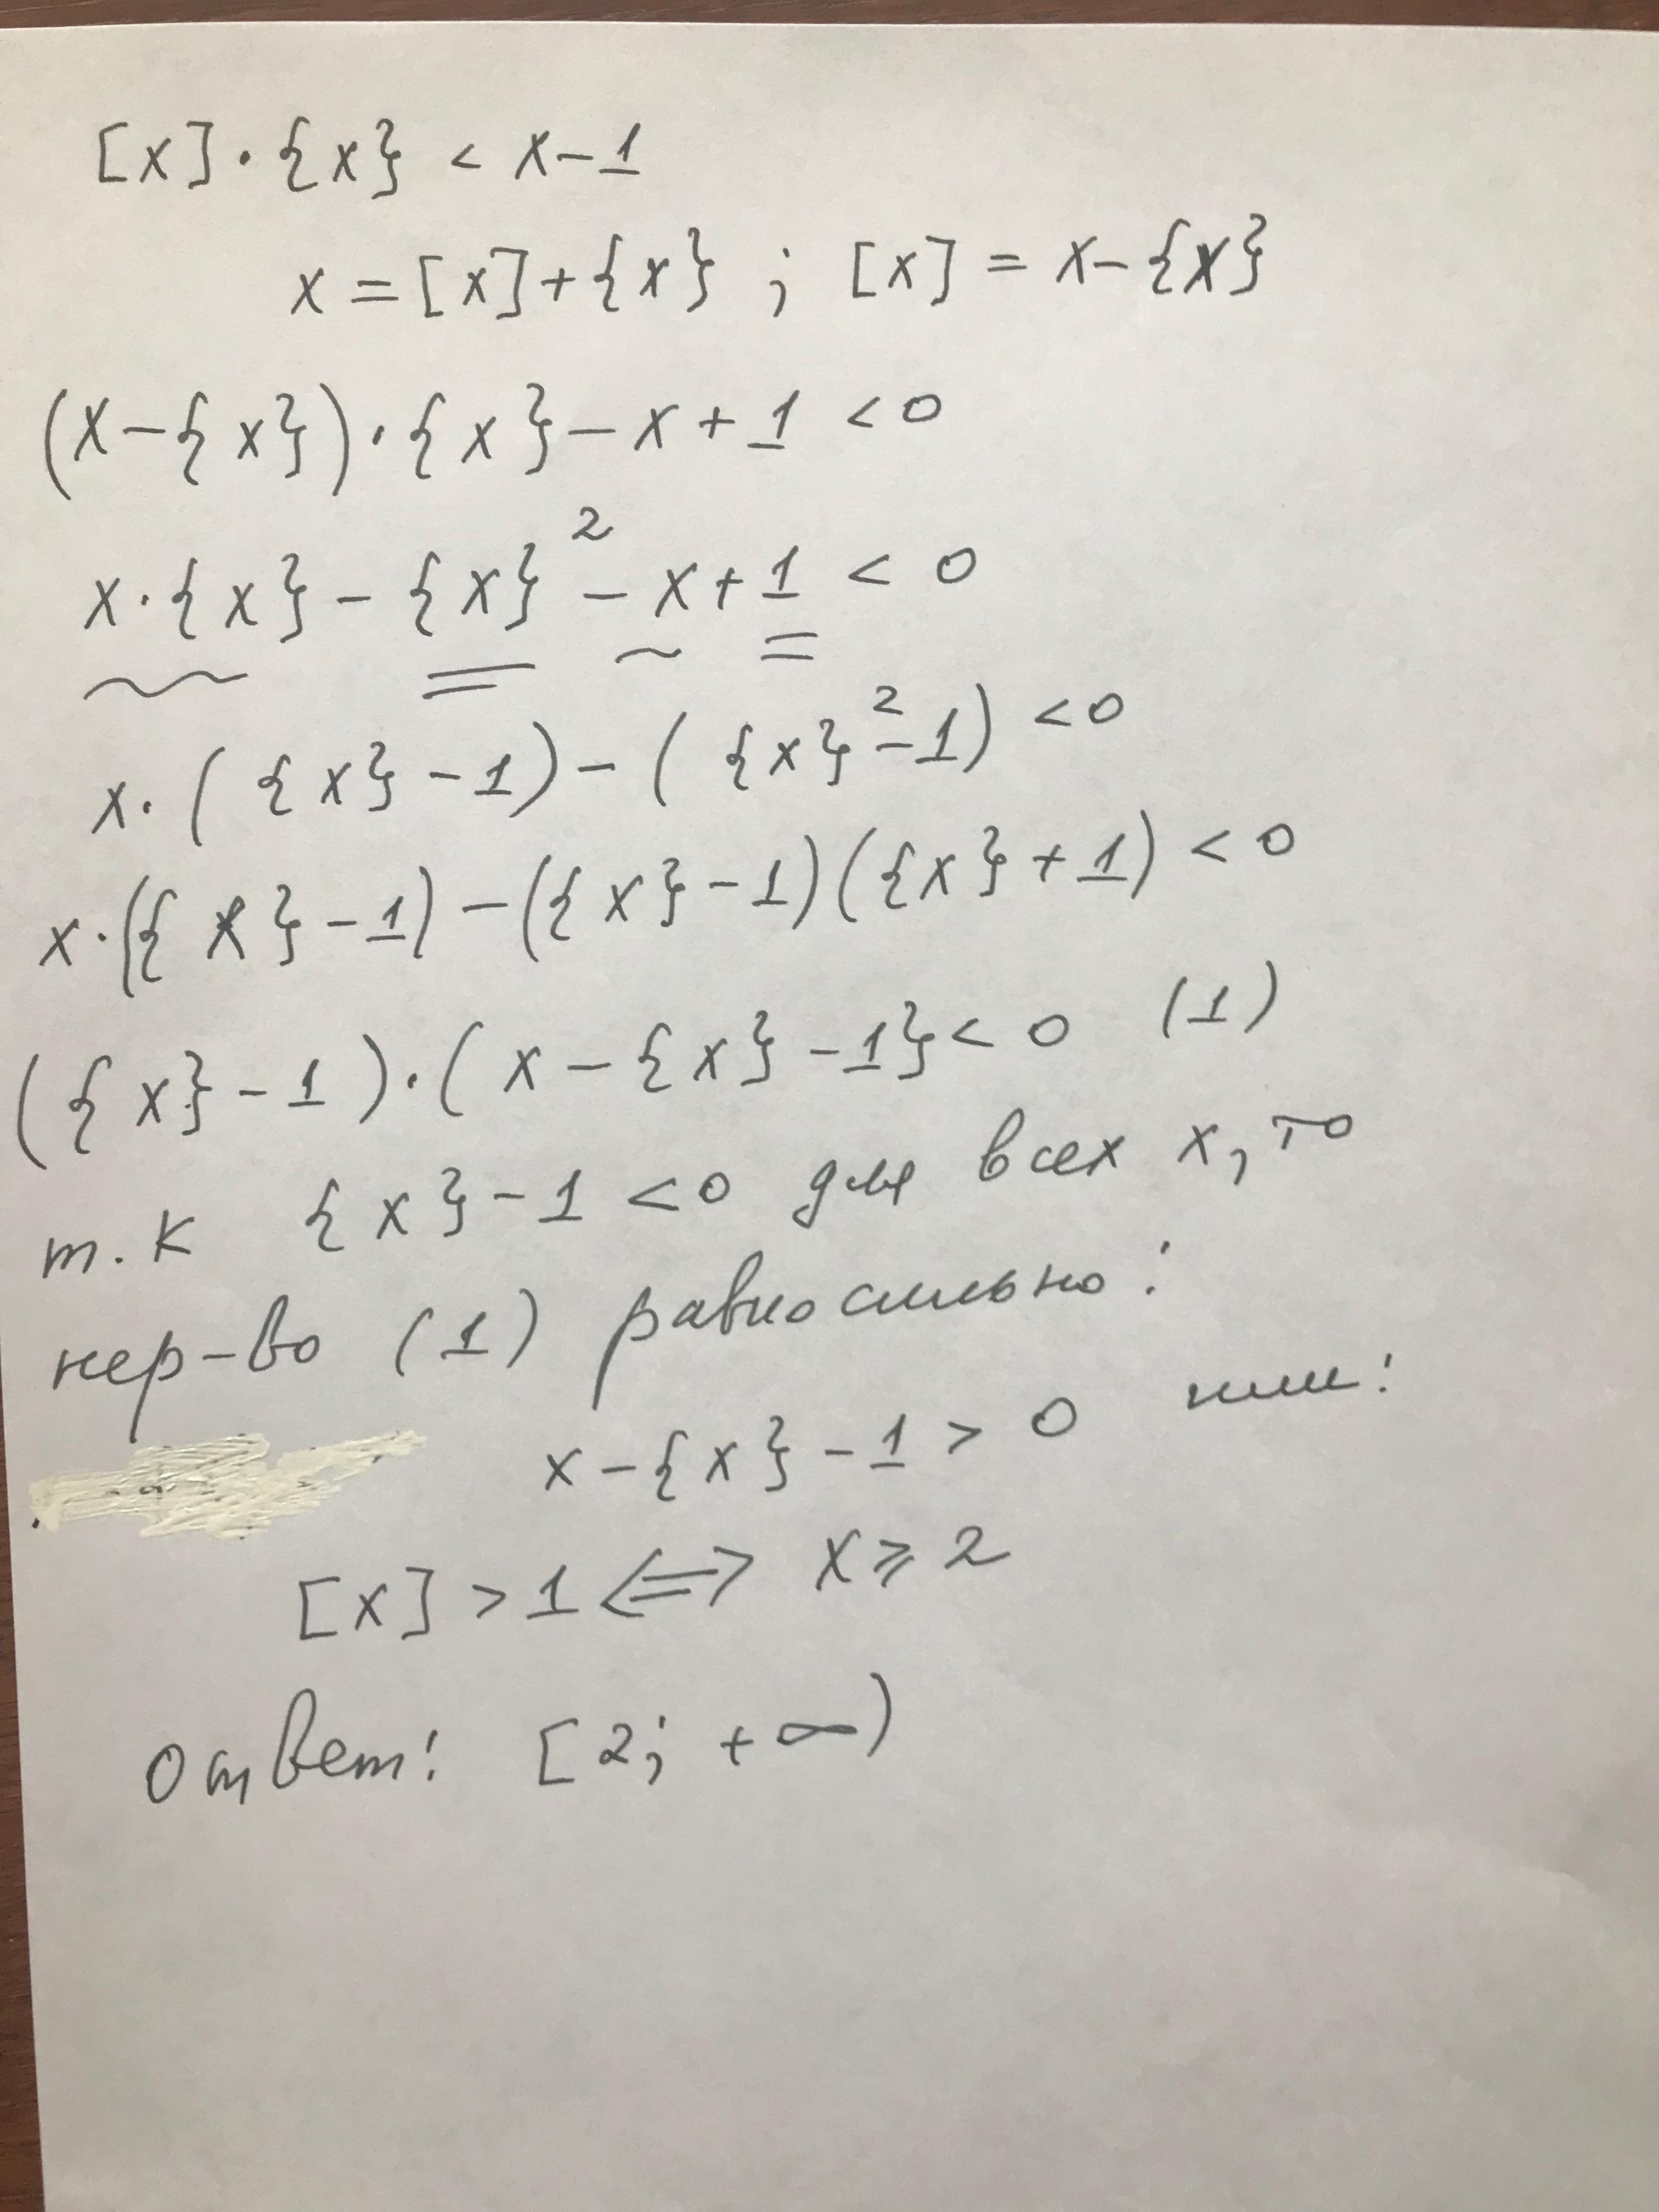 [x]·{x} < x-1
x = [x]+{x} ; [x] = x-{x}
(x-{x})·{x}-x+1 <0
x·{x}-{x}²-x+1 < 0
x·({x}-1)-({x}²-1) <0
x·({x}-1)-({x}-1)({x}+1) <0
({x}-1)·(x-{x}-1}< 0 (1)
т.к {x}-1 <0 для всех x, то
нер-во (1) равносильно:
x-{x}-1 > 0 или:
[x] >1 <=> x ⩾ 2
ответ: [2; +∞)